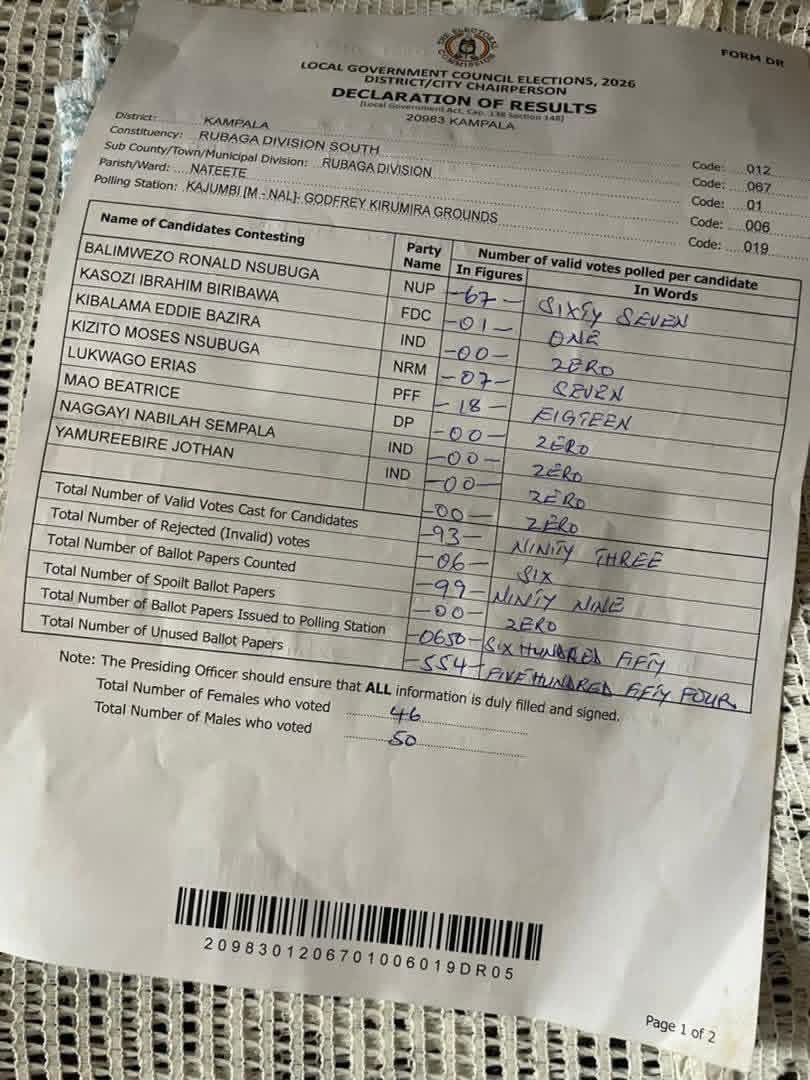 THE ELECTORAL COMMISSION
FORM DR
LOCAL GOVERNMENT COUNCIL ELECTIONS, 2026
DISTRICT/CITY CHAIRPERSON
DECLARATION OF RESULTS
[Local Government Act, Cap. 138 Section 148]
20983 KAMPALA
District: KAMPALA Code: 012
Constituency: RUBAGA DIVISION SOUTH Code: 067
Sub County/Town/Municipal Division: RUBAGA DIVISION Code: 01
Parish/Ward: NATEETE Code: 006
Polling Station: KAJUMBI [M - NAL]- GODFREY KIRUMIRA GROUNDS Code: 019
Name of Candidates Contesting Party Name Number of valid votes polled per candidate
In Figures In Words
BALIMWEZO RONALD NSUBUGA NUP -67- SIXTY SEVEN
KASOZI IBRAHIM BIRIBAWA FDC -01- ONE
KIBALAMA EDDIE BAZIRA IND -00- ZERO
KIZITO MOSES NSUBUGA NRM -07- SEVEN
LUKWAGO ERIAS PFF -18- EIGTEEN
MAO BEATRICE DP -00- ZERO
NAGGAYI NABILAH SEMPALA IND -00- ZERO
YAMUREEBIRE JOTHAN IND -00- ZERO
-00- ZERO
Total Number of Valid Votes Cast for Candidates -93- NINITY THREE
Total Number of Rejected (Invalid) votes -06- SIX
Total Number of Ballot Papers Counted -99- NINTY NINE
Total Number of Spoilt Ballot Papers -00- ZERO
Total Number of Ballot Papers Issued to Polling Station -0650- SIX HUNDRED FIFTY
Total Number of Unused Ballot Papers -554- FIVE HUNDRED FIFTY FOUR
Note: The Presiding Officer should ensure that ALL information is duly filled and signed.
Total Number of Females who voted 46
Total Number of Males who voted 50
2098301206701006019DR05
Page 1 of 2